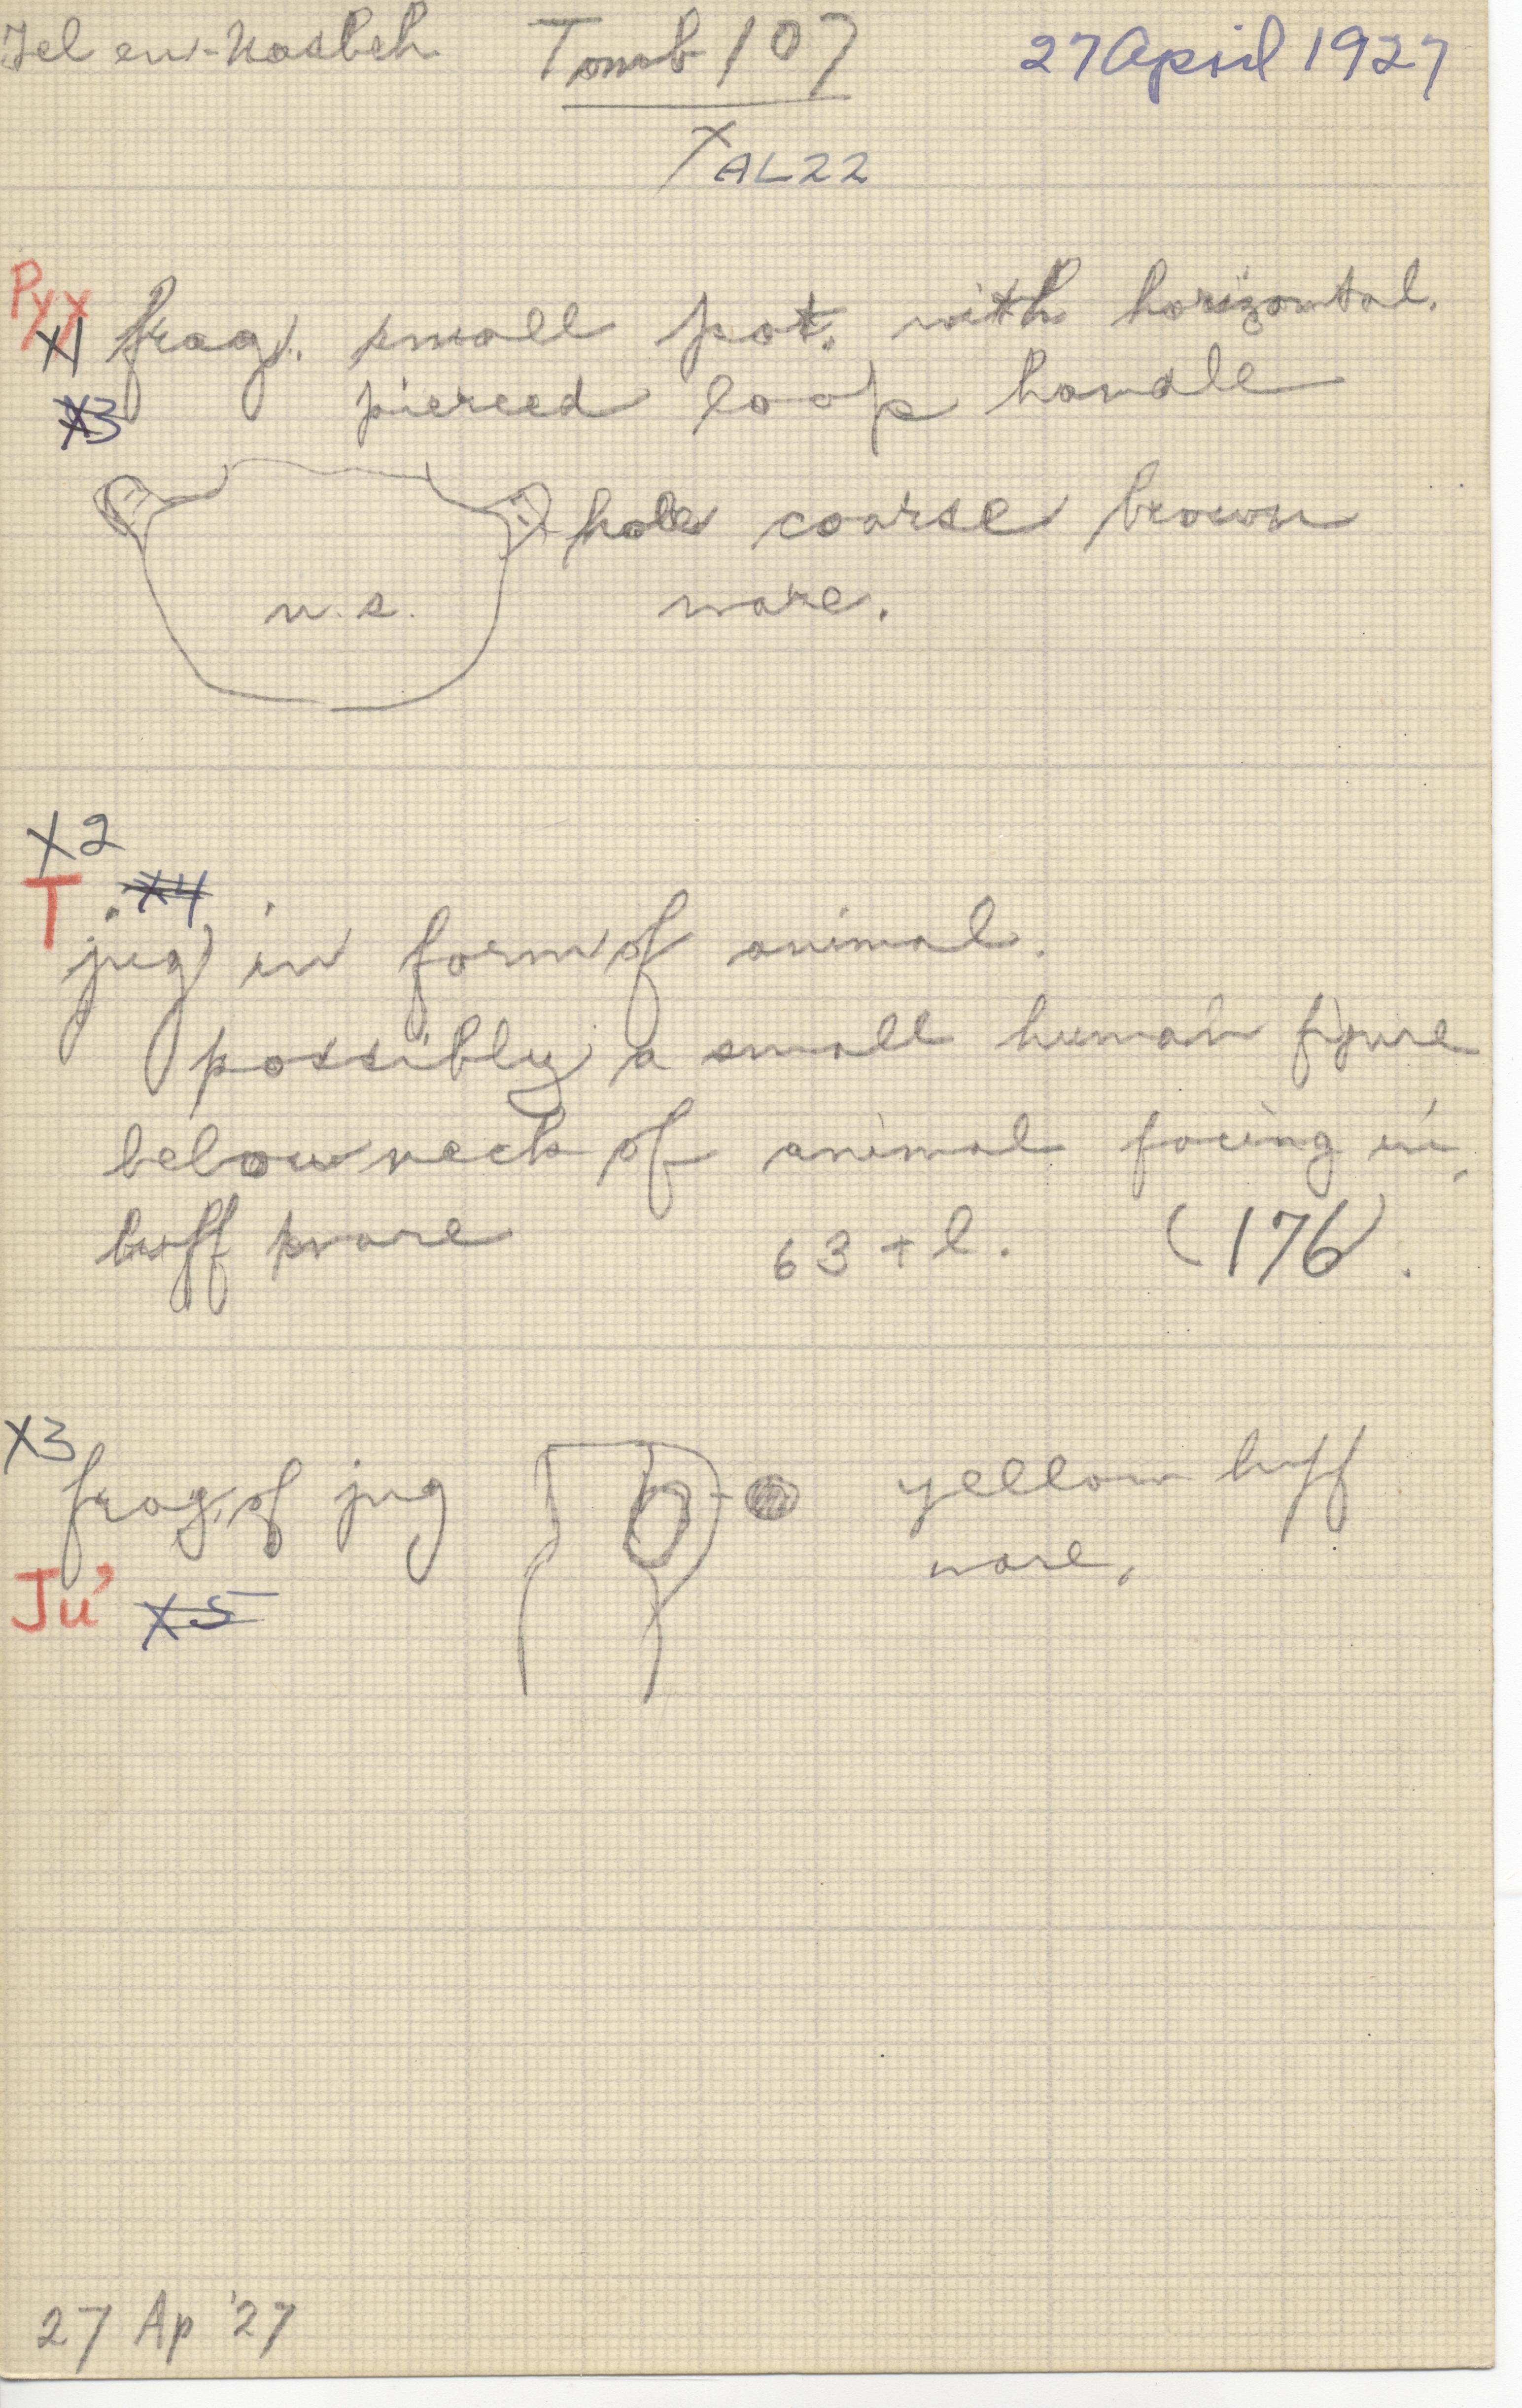 Tel en-Nasbeh Tomb 107 27 April 1927
X AL22
Pyx
X1 frag. small pot. with horizontal.
X3 pierced loop handle
hole coarse brown
n.s. ware.
X2
T X4
jug in form of animal.
possibly a small human figure
below neck of animal facing in.
buff ware 63 + l. (176).
X3
frag. of jug yellow buff
Ju' X5 ware.
27 Ap '27